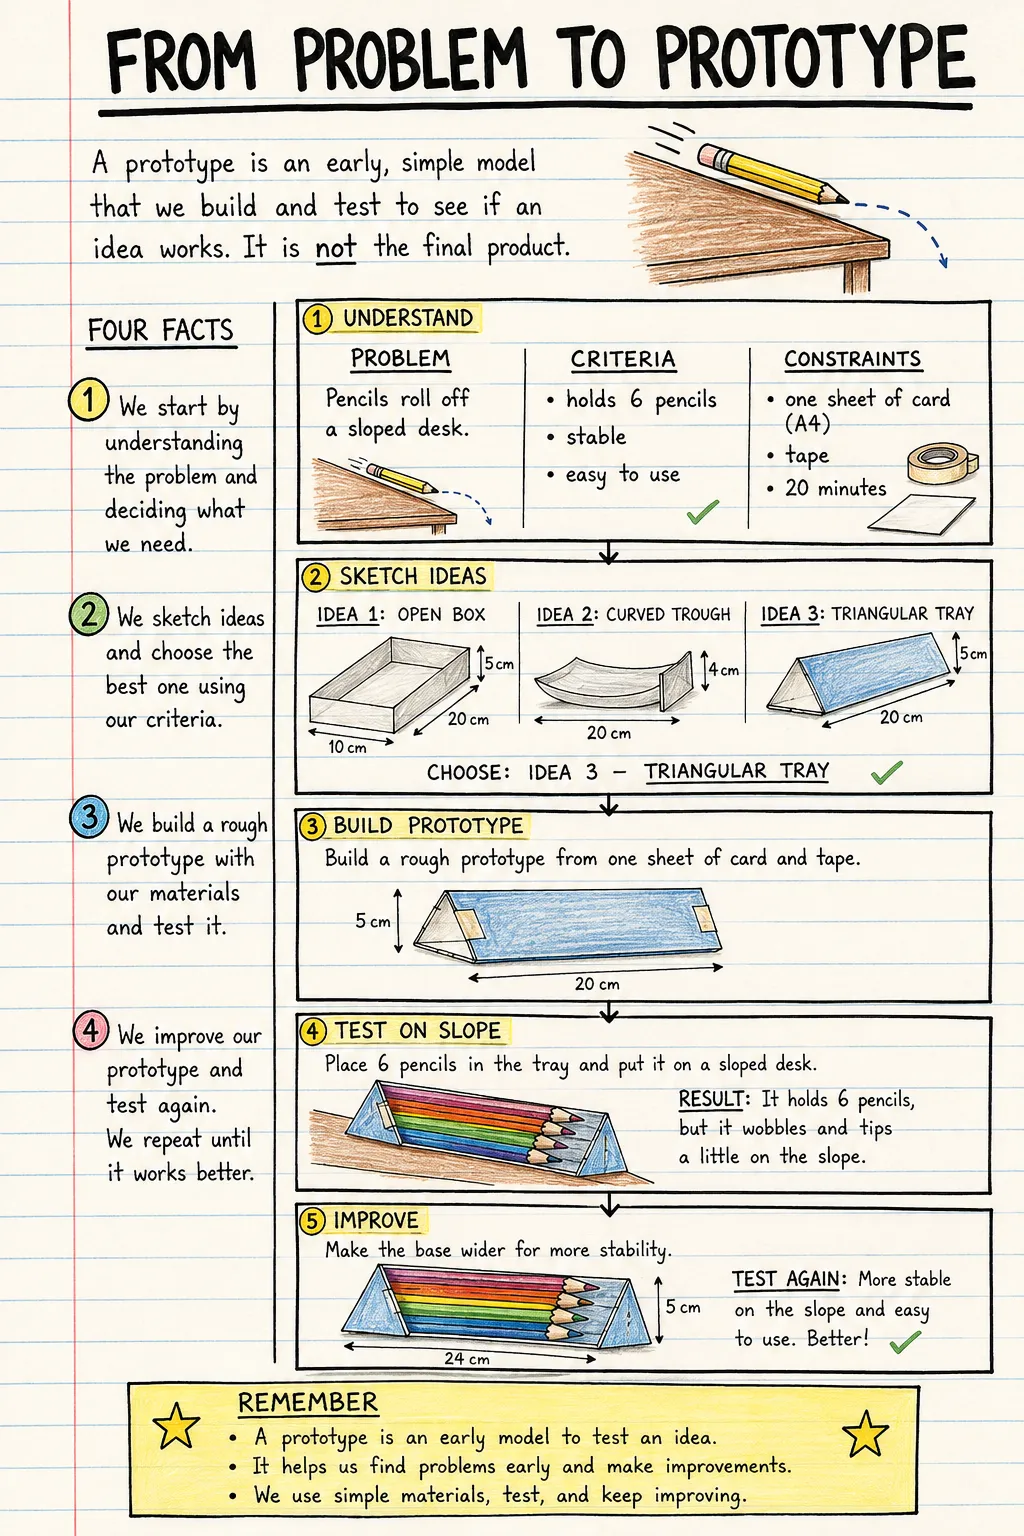 FROM PROBLEM TO PROTOTYPE
A prototype is an early, simple model
that we build and test to see if an
idea works. It is not the final product.
FOUR FACTS
1 We start by
understanding
the problem and
deciding what
we need.
2 We sketch ideas
and choose the
best one using
our criteria.
3 We build a rough
prototype with
our materials
and test it.
4 We improve our
prototype and
test again.
We repeat until
it works better.
1 UNDERSTAND
PROBLEM
Pencils roll off
a sloped desk.
CRITERIA
• holds 6 pencils
• stable
• easy to use
CONSTRAINTS
• one sheet of card
(A4)
• tape
• 20 minutes
2 SKETCH IDEAS
IDEA 1: OPEN BOX
5 cm
20 cm
10 cm
IDEA 2: CURVED TROUGH
4 cm
20 cm
IDEA 3: TRIANGULAR TRAY
5 cm
20 cm
CHOOSE: IDEA 3 – TRIANGULAR TRAY
3 BUILD PROTOTYPE
Build a rough prototype from one sheet of card and tape.
5 cm
20 cm
4 TEST ON SLOPE
Place 6 pencils in the tray and put it on a sloped desk.
RESULT: It holds 6 pencils,
but it wobbles and tips
a little on the slope.
5 IMPROVE
Make the base wider for more stability.
5 cm
24 cm
TEST AGAIN: More stable
on the slope and easy
to use. Better!
REMEMBER
• A prototype is an early model to test an idea.
• It helps us find problems early and make improvements.
• We use simple materials, test, and keep improving.